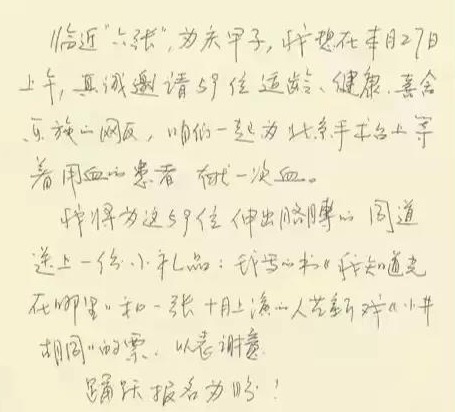 临近“六张”,为庆甲子,我想在本月27日
上午,真诚邀请59位适龄、健康、喜舍
乐施的网友,咱们一起为北京手术台上等
着用血的患者 献一次血。
我将为这59位伸出胳膊的同道
送上一份小礼品:我写的书《我知道光
在哪里》和一张十月上演的人艺新戏《小井
胡同》的票。以表谢意
踊跃报名为盼!